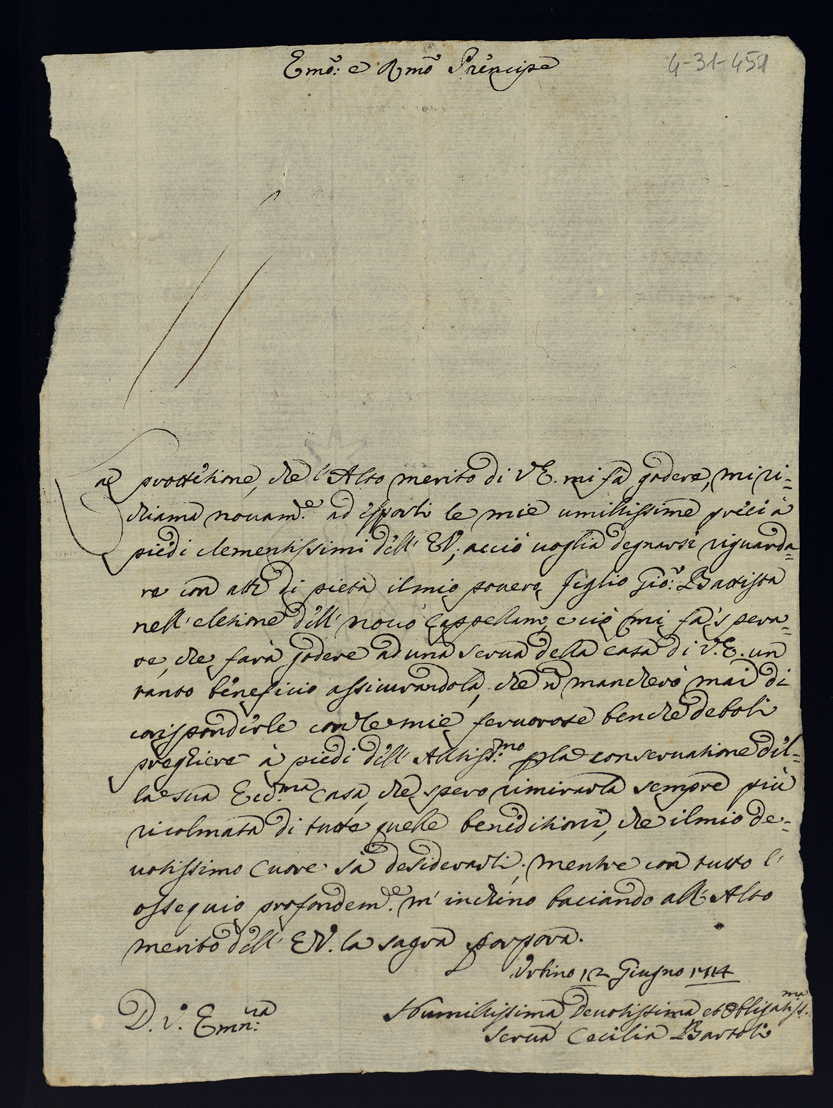 Emo: e Rmo Principe
4-31-451
La protetione, che l'Alto merito di V.E. mi fà godere, mi ri=
chiama novam.e ad esporli le mie umilissime preci à
piedi clementissimi dell' EV; acciò voglia degnarsi riguarda=
re con atti di pietà il mio povero figlio Gio: Battista
nell' eletione dell' novo Cappellano, e ciò mi fà spera=
re, che farà godere ad una serva della casa di V.E. un
tanto beneficio assicurandola, che ñ mancherò mai di
corispondirle con le mie fervorose benche deboli
preghiere à piedi dell' Altiss.mo p la conservatione del=
la sua Ecc.ma casa, che spero rimirarla sempre più
ricolmata di tutte quelle beneditioni, che il mio de=
votissimo Cuore sà desiderarli; mentre con tutto l'
ossequio profondem.e m' inchino baciando all' Alto
merito dell' EV. la sagra porpora.
Urbino 12 Giugno
D. V. Emn:za
Humilissima, Devotissima et Obligatiss.ma
serva Cecilia Bartoli